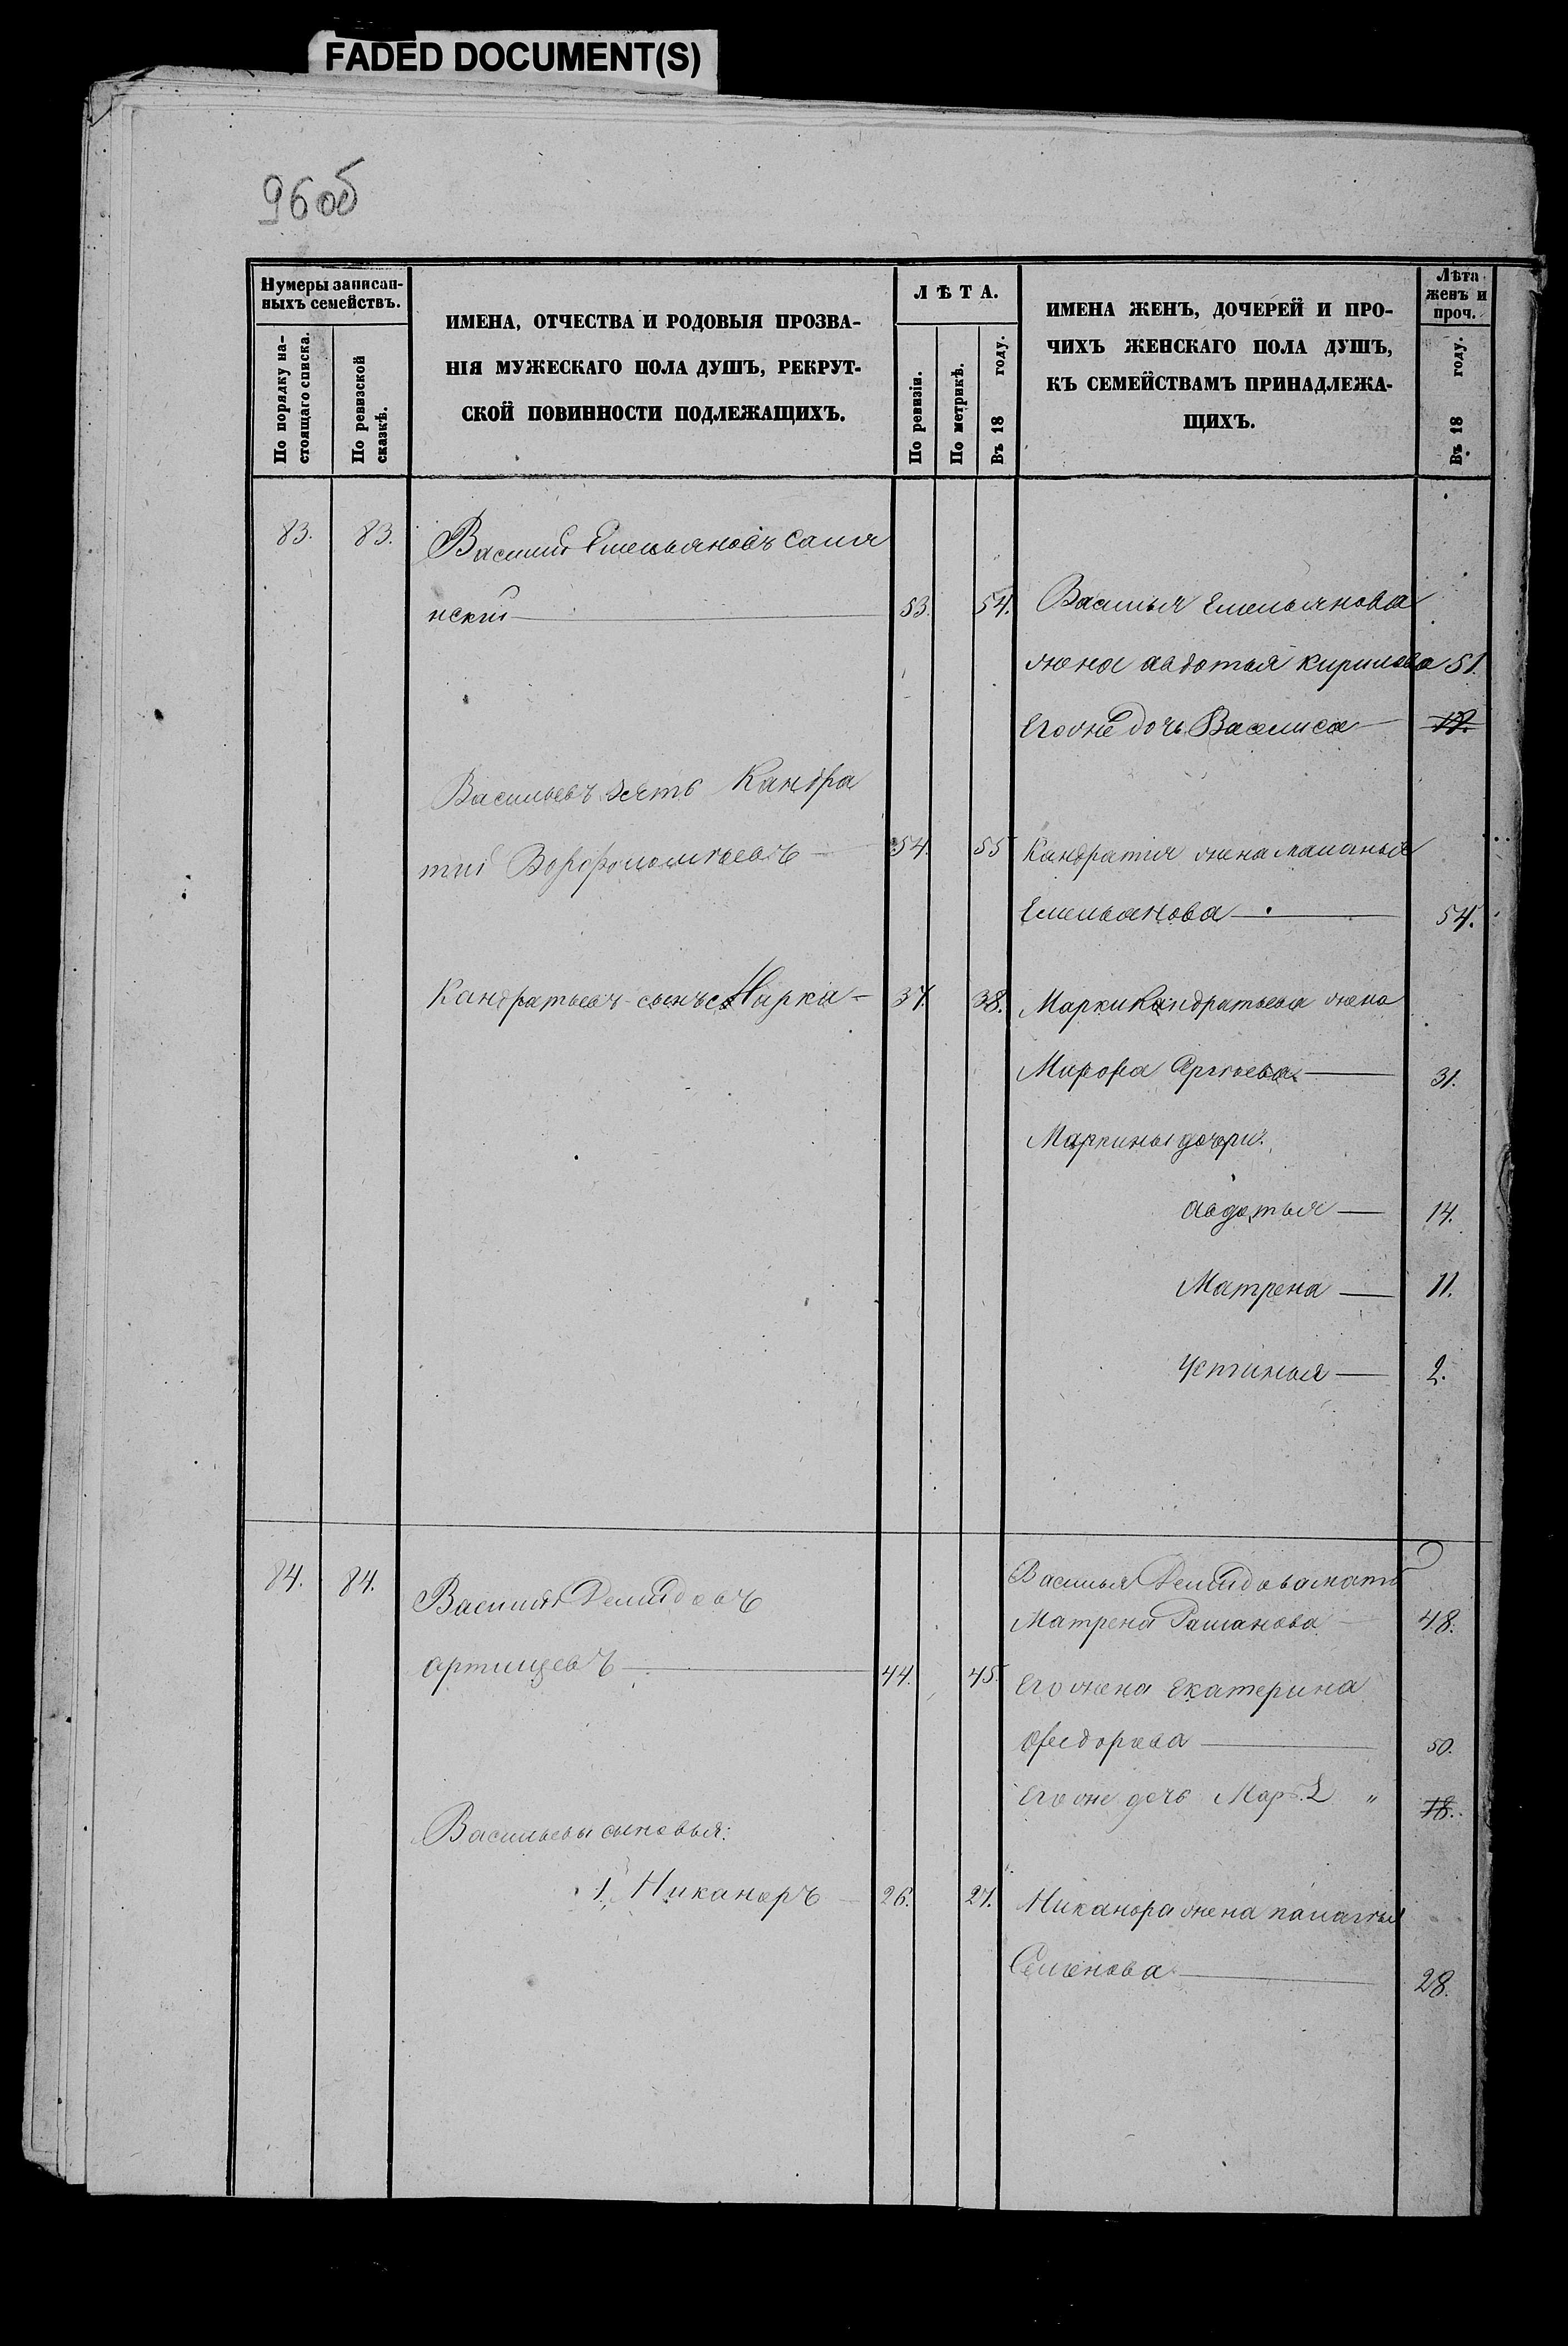 FADED DOCUMENT(S)
96 об
Нумеры записан-
ныхъ семействъ.
По порядку на-
стоящаго списка.
По ревизской
сказкѣ.
ИМЕНА, ОТЧЕСТВА И РОДОВЫЯ ПРОЗВА-
НІЯ МУЖЕСКАГО ПОЛА ДУШЪ, РЕКРУТ-
СКОЙ ПОВИННОСТИ ПОДЛЕЖАЩИХЪ.
ЛѢТА.
По ревизіи.
По метрикѣ.
Въ 18 году.
ИМЕНА ЖЕНЪ, ДОЧЕРЕЙ И ПРО-
ЧИХЪ ЖЕНСКАГО ПОЛА ДУШЪ,
КЪ СЕМЕЙСТВАМЪ ПРИНАДЛЕЖА-
ЩИХЪ.
Лѣта
женъ и
проч.
Въ 18 году.
83. 83. Василий Емельяновъ
нский 53. 54. Василья Емельянова
жена авдотья кирилова 51.
Егоже дочь Василиса 17.
Васильевъ зять Кандра
тий 54. 55 Кандратия жена маланья
Емельянова 54.
Кандратьевъ сынъ Марка 37. 38. Марки Кандратьева жена
31.
Маркины дочери.
авдотья 14.
Матрена 11.
Устинья 2.
84. 84. Василий Демидовъ Василья Демидова мать
Матрена 48.
44. 45. Его жена Екатерина
Федорова 50.
Его же дочь 18.
Васильевы сыновья:
1. Никаноръ 26. 27. Никанора жена палагья
Семенова 28.